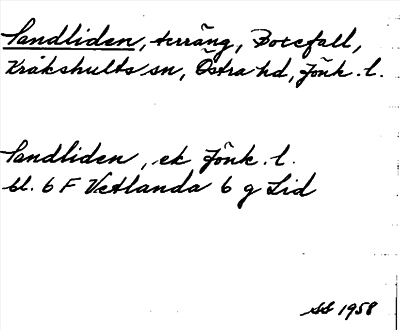 Sandliden, terräng, Botefall,
Kråkshults sn, Östra hd, Jönk. l.
Sandliden, ek Jönk. l.
bl. 6 F Vetlanda 6 g Lid
SS 1958